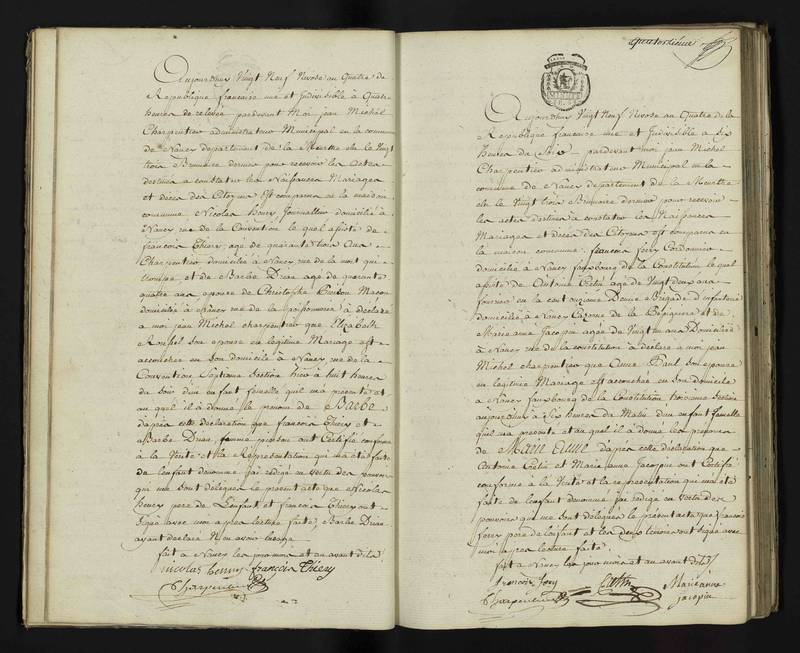 Aujourdhuy Vingt Neuf Nivose an Quatre de
Republique francaise une et Indivisible à Quatre
heures de relevée pardevant Moi jean Michel
Charpentier administrateur Municipal en la commune
de Nancy departement de la Meurthe elu le Vingt
trois Brumaire dernier pour recevoir les Actes
destinés a constater les Naissances Mariages
et deces des Citoyens Est comparu en la maison
commune Nicolas henry Journallier domicilié à
Nancy rue de la Convention lequel assisté de
francois Thiery agé de quarante trois Ans
Charpentier domicilié à Nancy rue de la
et de Barbe agé de quarante
quatre ans epouse de Christophe Macon
domicilié à Nancy rue de la poissonnerie a déclaré
a moi jean Michel charpentier que Elizabeth
son epouse en legitime Mariage est
accouchée en son domicile à Nancy rue de la
Convention Septieme Section hier à huit heures
du Soir d'un enfant femelle quil ma presenté et
au quel il a donné le prenom de Barbe
d'après cette déclaration que francois Thiery et
Barbe femme ont Certifié conforme
à la Verité et la Représentation qui ma été faite
de l'enfant denommé j'ai redigé en vertu des pouvoirs
qui me sont délégués le present acte que Nicolas
henry pere de l'enfant et francois Thiery ont
Signé avec moi apres lecture faite, Barbe
ayant declaré Non savoir
fait à Nancy les jour mois et an avant dits
nicolas henry francois Thiery
Charpentier
Aujourdhuy Vingt Neuf Nivose an Quatre de la
Republique francaise une et Indivisible a Six
heures du Soir pardevant moi jean Michel
Charpentier administrateur Municipal en la
commune de Nancy departement de la Meurthe
elu le Vingt trois Brumaire dernier pour recevoir
les actes destinés a constater les Naissances
Mariages et deces des Citoyens est comparu en
la maison commune francois Cordonnier
domicilié à Nancy faubourg de la Constitution lequel
assisté de Antoine agé de Vingt deux ans
en la cent onzieme Demie Brigade d'infanterie
domicilié à Nancy Cazerne de la Pépiniere et de
Marie anne Jacopin agée de Vingt un ans Domiciliée
à Nancy rue de la constitution a déclaré a moi jean
Michel charpentier que Anne Paul Son epouse
en legitime Mariage est accouchée en son domicile
à Nancy faubourg de la Constitution troisieme Section
aujourdhuy à Six heures du Matin d'un enfant femelle
quil ma presenté et au quel il a donné les prenoms
de Marie Anne d'après cette déclaration que
Antoine et Marie anne Jacopin ont Certifié
conforme à la Verité et la representation qui ma été
faite de l'enfant denommé j'ai redigé en vertu des
pouvoirs qui me sont délégués le present acte que francois
pere de l'enfant et les deux témoins ont signé avec
moi apres lecture faite
fait a Nancy les jour mois et an avant dits
francois
Marieanne
Charpentier jacopin